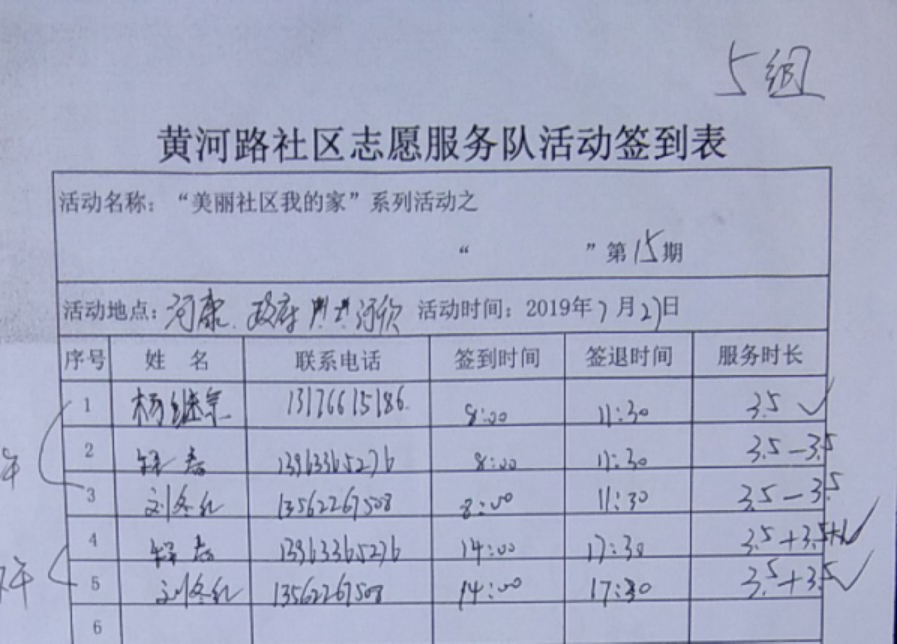 5组
黄河路社区志愿服务队活动签到表
活动名称：“美丽社区我的家”系列活动之
“ ”第15期
活动地点：河康、政府 活动时间：2019年7月27日
序号 姓名 联系电话 签到时间 签退时间 服务时长
1 杨继宗 13176615186 8:00 11:30 3.5 ✓
2 13963365276 8:00 11:30 3.5-3.5
3 刘冬红 13562267508 8:00 11:30 3.5-3.5
4 13963365276 14:00 17:30 3.5+3.5+1 ✓
5 刘冬红 13562267508 14:00 17:30 3.5+3.5 ✓
6